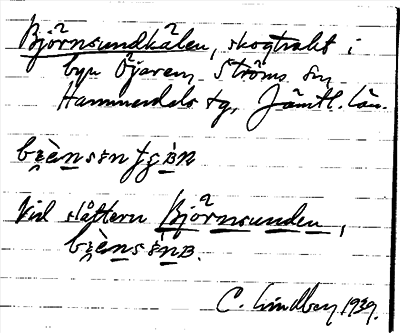 Björnsundkälen, skogtrakt i
byn Öjaren Ströms sn
Hammerdals tg, Jämtl. län.
Vid slåttern Björnsunden,
C. Lindberg 1939.